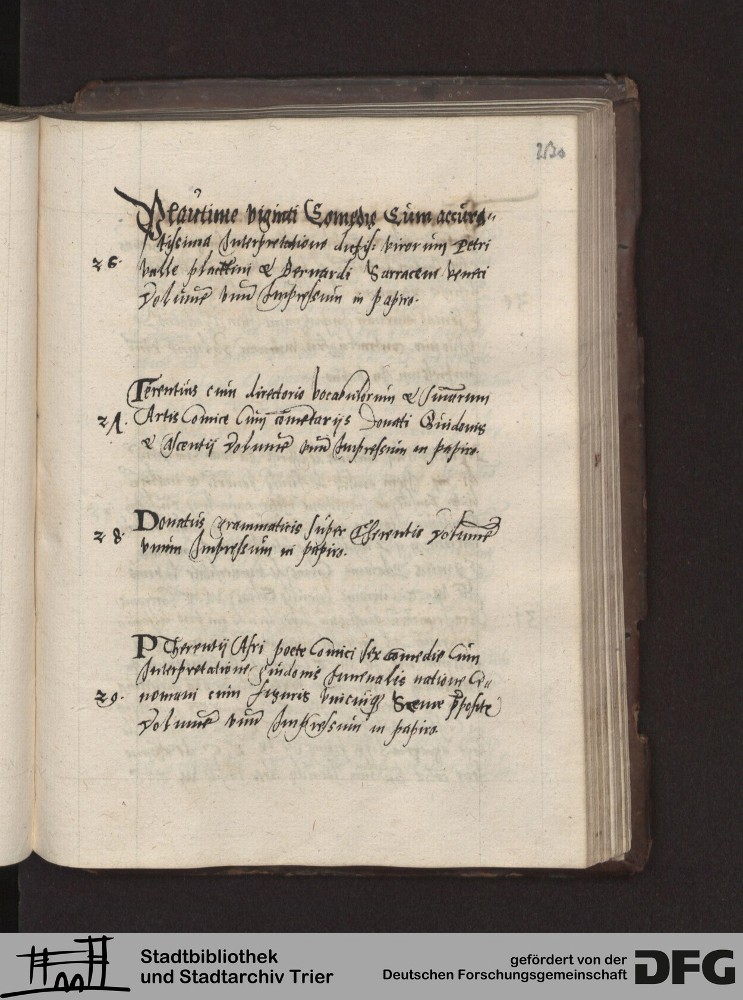 Plautine viginti Comedie Cum accura„
tissima Interpretatione virorum Petri
26. Valle placentini & Bernardi Sarraceni veneti
Volume vnu Impressum in papiro.
Terentius cum directorio vocabulorum &
27. Artis Comice Cum cometarijs Donati Guidonis
& Ascentij Volume vnu Impressum in papiro.
28. Donatus grammaticus super Therentio Volume
vnum Impressum in papiro.
P Therentij Afri poete Comici sex comedie Cum
Interpretatione Guidonis Iuuenalis natione Ce„
29. nomani cum figuris Scene
Volume vnu Impressum in papiro
Stadtbibliothek
und Stadtarchiv Trier
gefördert von der
Deutschen Forschungsgemeinschaft
DFG